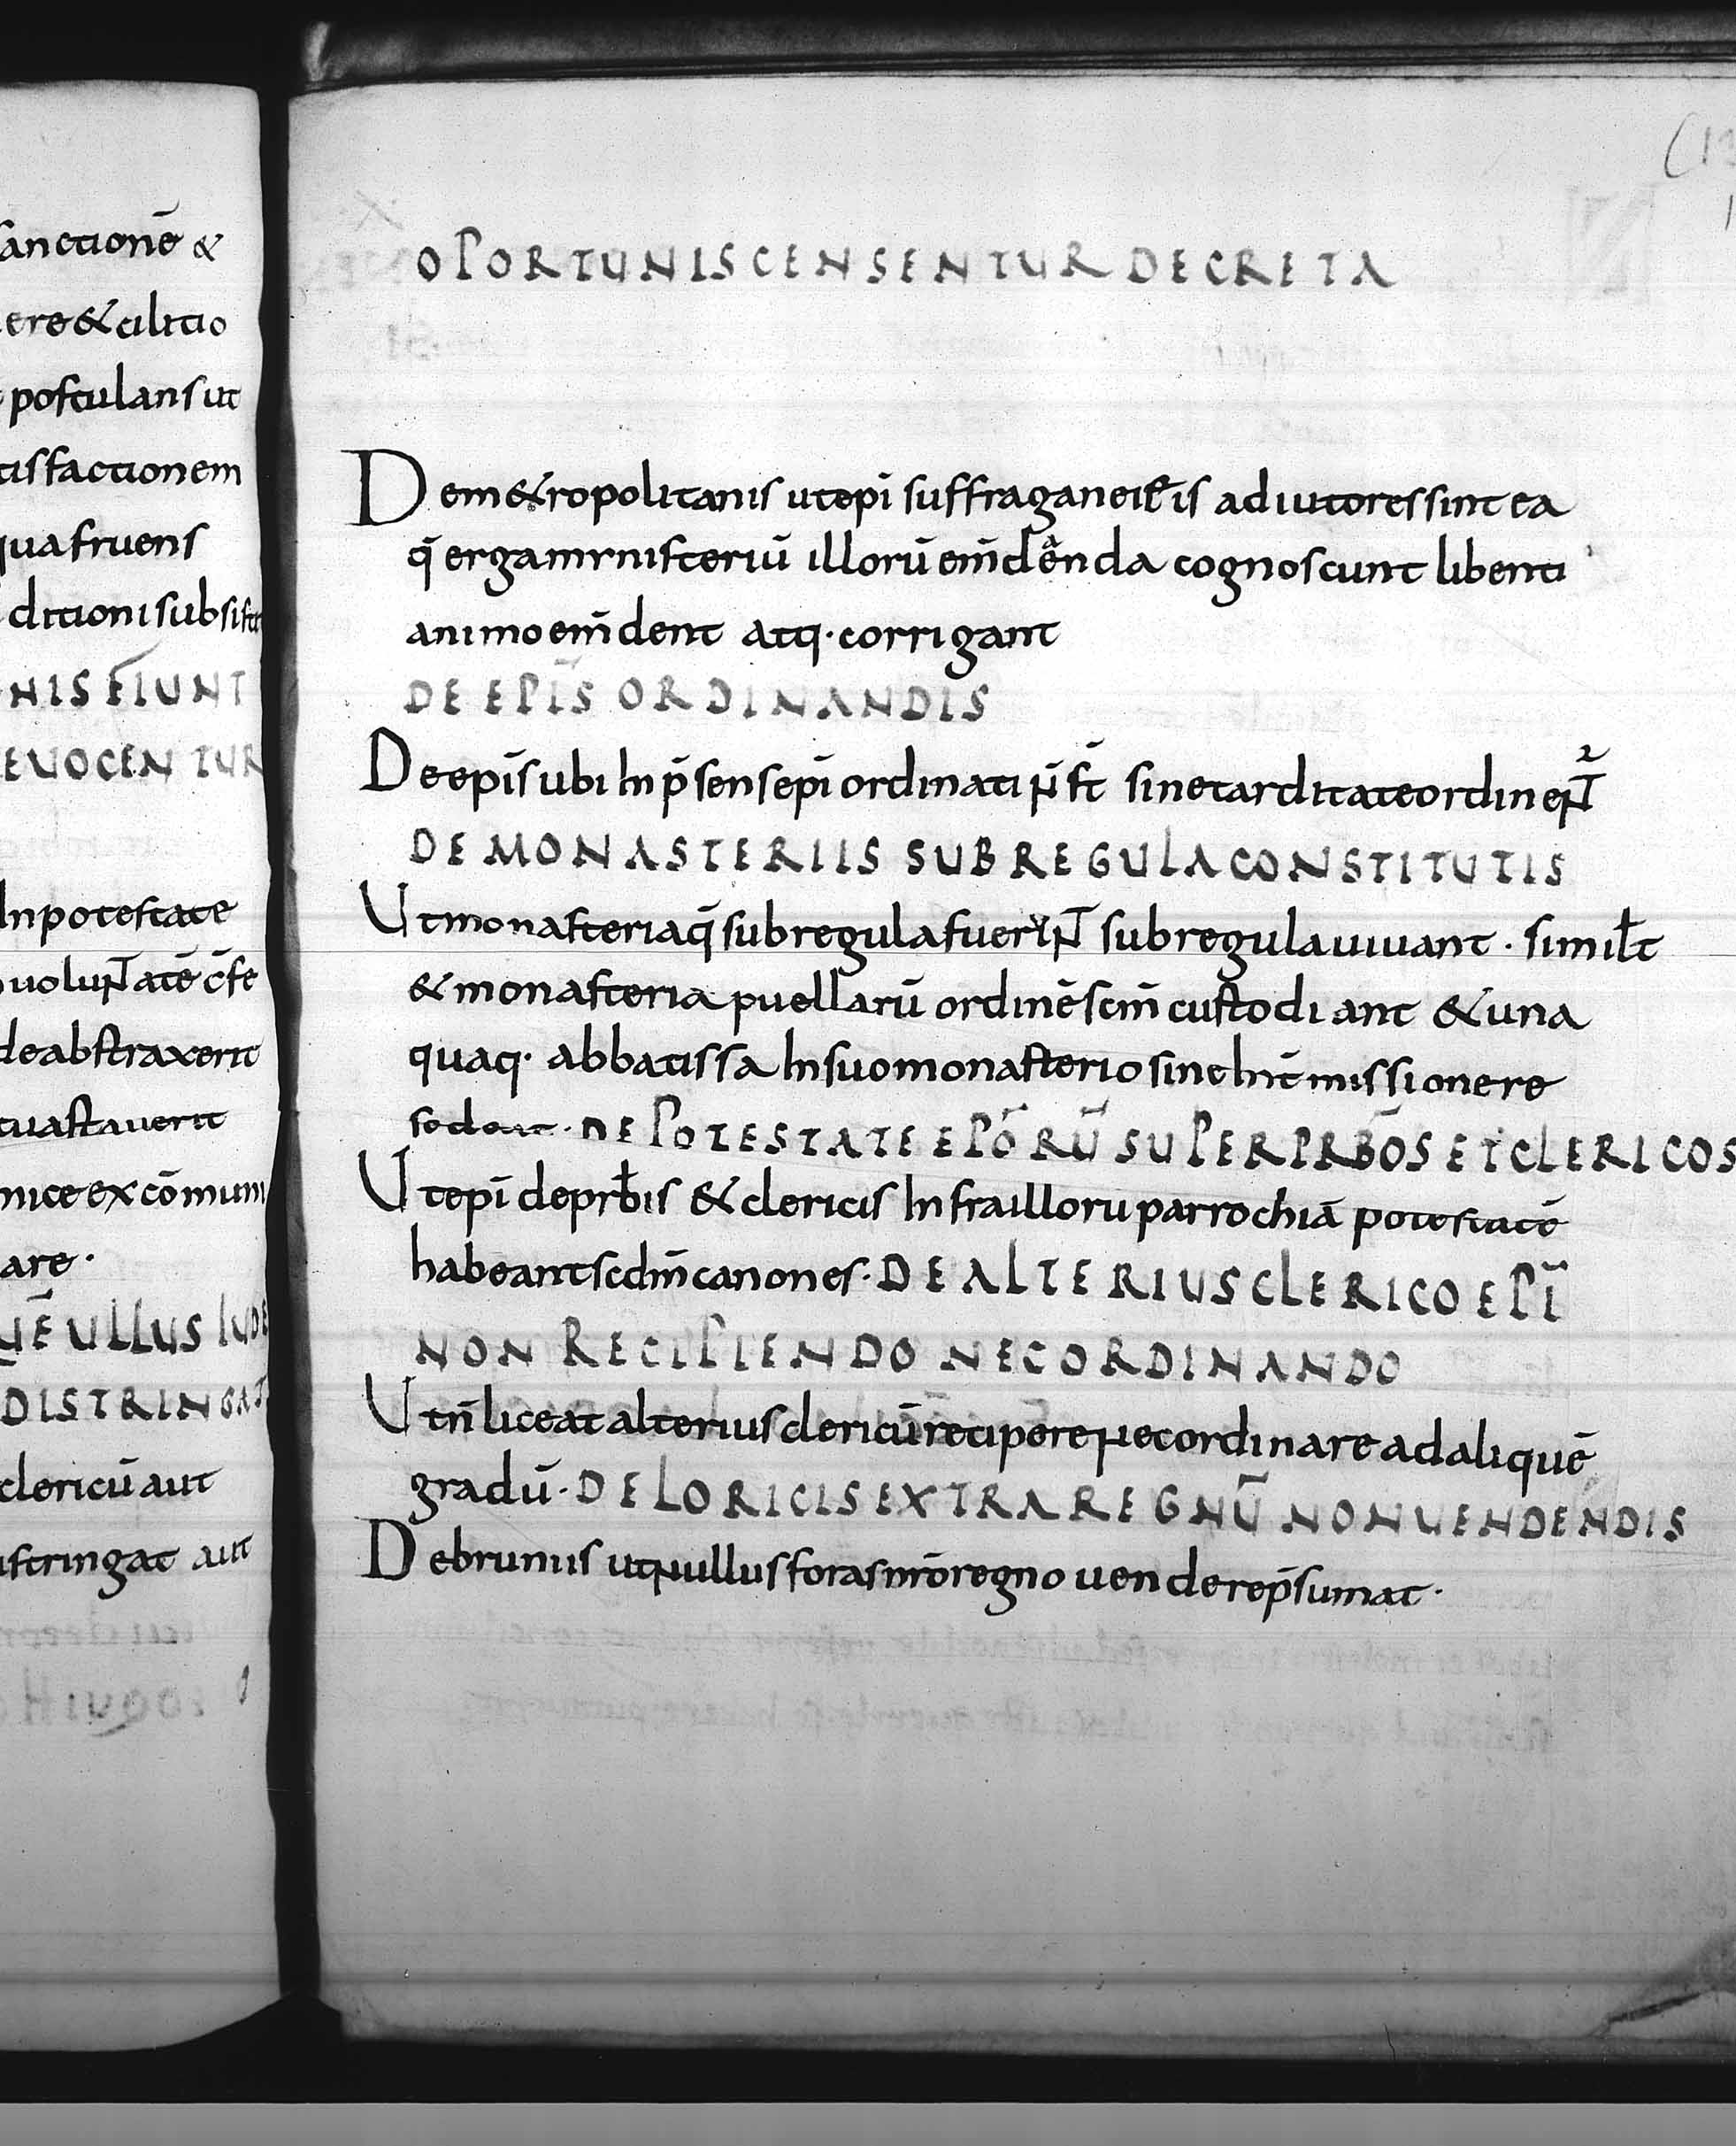 sanctionē &
ere & cilitio
postulans ut
tisfactionem
qua fruens
ditioni subsist
NIS FIUNT
EUOCENTUR
In potestate
uoluntatē c̄fe
de abstraxerit
tuastauerit
nice excōmuni
are ·
UĒ ULLUS IUDE
DISTRINGAT
clericū aut
istringat aut
OPORTUNIS CENSENTUR DECRETA
De metropolitanis ut epī suffraganei eis adiutores sint ea
q̄ erga mrnisteriū illorū em̄denda cognoscunt libenti
animo em̄dent atq· corrigant
DE EPĪS ORDINANDIS
De epīs ubi In p̄sens epī ordinati n̄ st̄ sine tarditate ordinent̄
DE MONASTERIIS SUB REGULA CONSTITUTIS
Ut monasteria q̄ sub regula fuerint sub regula uiuant · simił t
& monasteria puellarū ordinē scm̄ custodiant & una
quaq· abbatissa In suo monasterio sine Int̄missione re
sedeat · DE POTESTATE EPŌRŪ SUPER PRB̄OS ET CLERICOS
Ut epī de prb̄is & clericis Infra illoru parrochiā potestatē
habeant scdm̄ canones · DE ALTERIUS CLERICO EPĪ
NON RECIPIENDO NEC ORDINANDO
Ut n̄ liceat alterius clericū recipere nec ordinare ad aliquē
gradū · DE LORICIS EXTRA REGNŪ NON UENDENDIS
De bruniis ut nullus foras nrō regno uendere p̄sumat ·